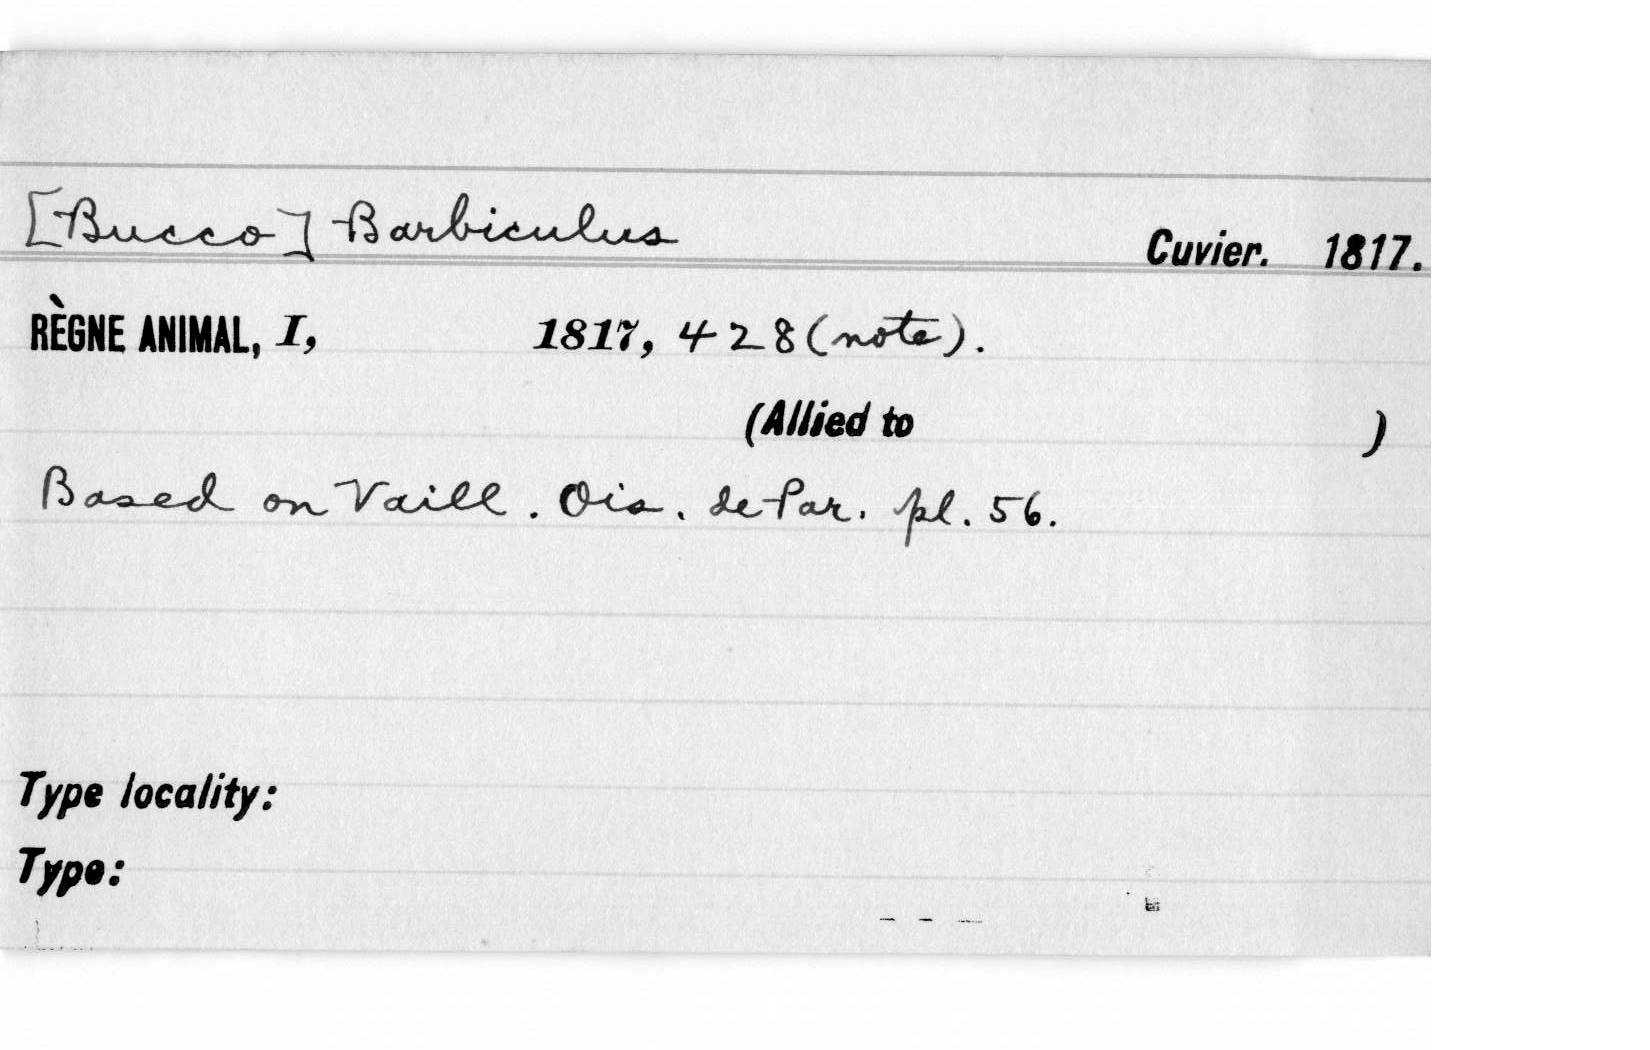 [Bucco] Barbiculus Cuvier. 1817.
RÈGNE ANIMAL, I, 1817, 428 (note).
(Allied to )
Based on Vaill. Ois. de Par. pl. 56.
Type locality:
Type: